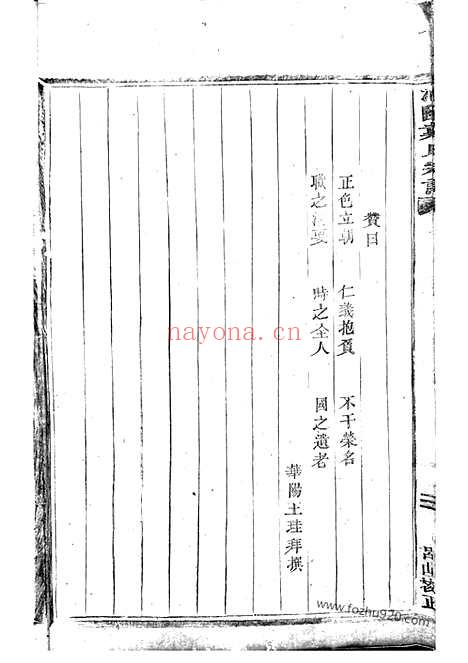 贊曰
正色立朝 仁義抱負 不干榮名
職之清要 時之全人 國之遺老
華陽王珪拜撰
nayona.cn
www.fozhu920.com